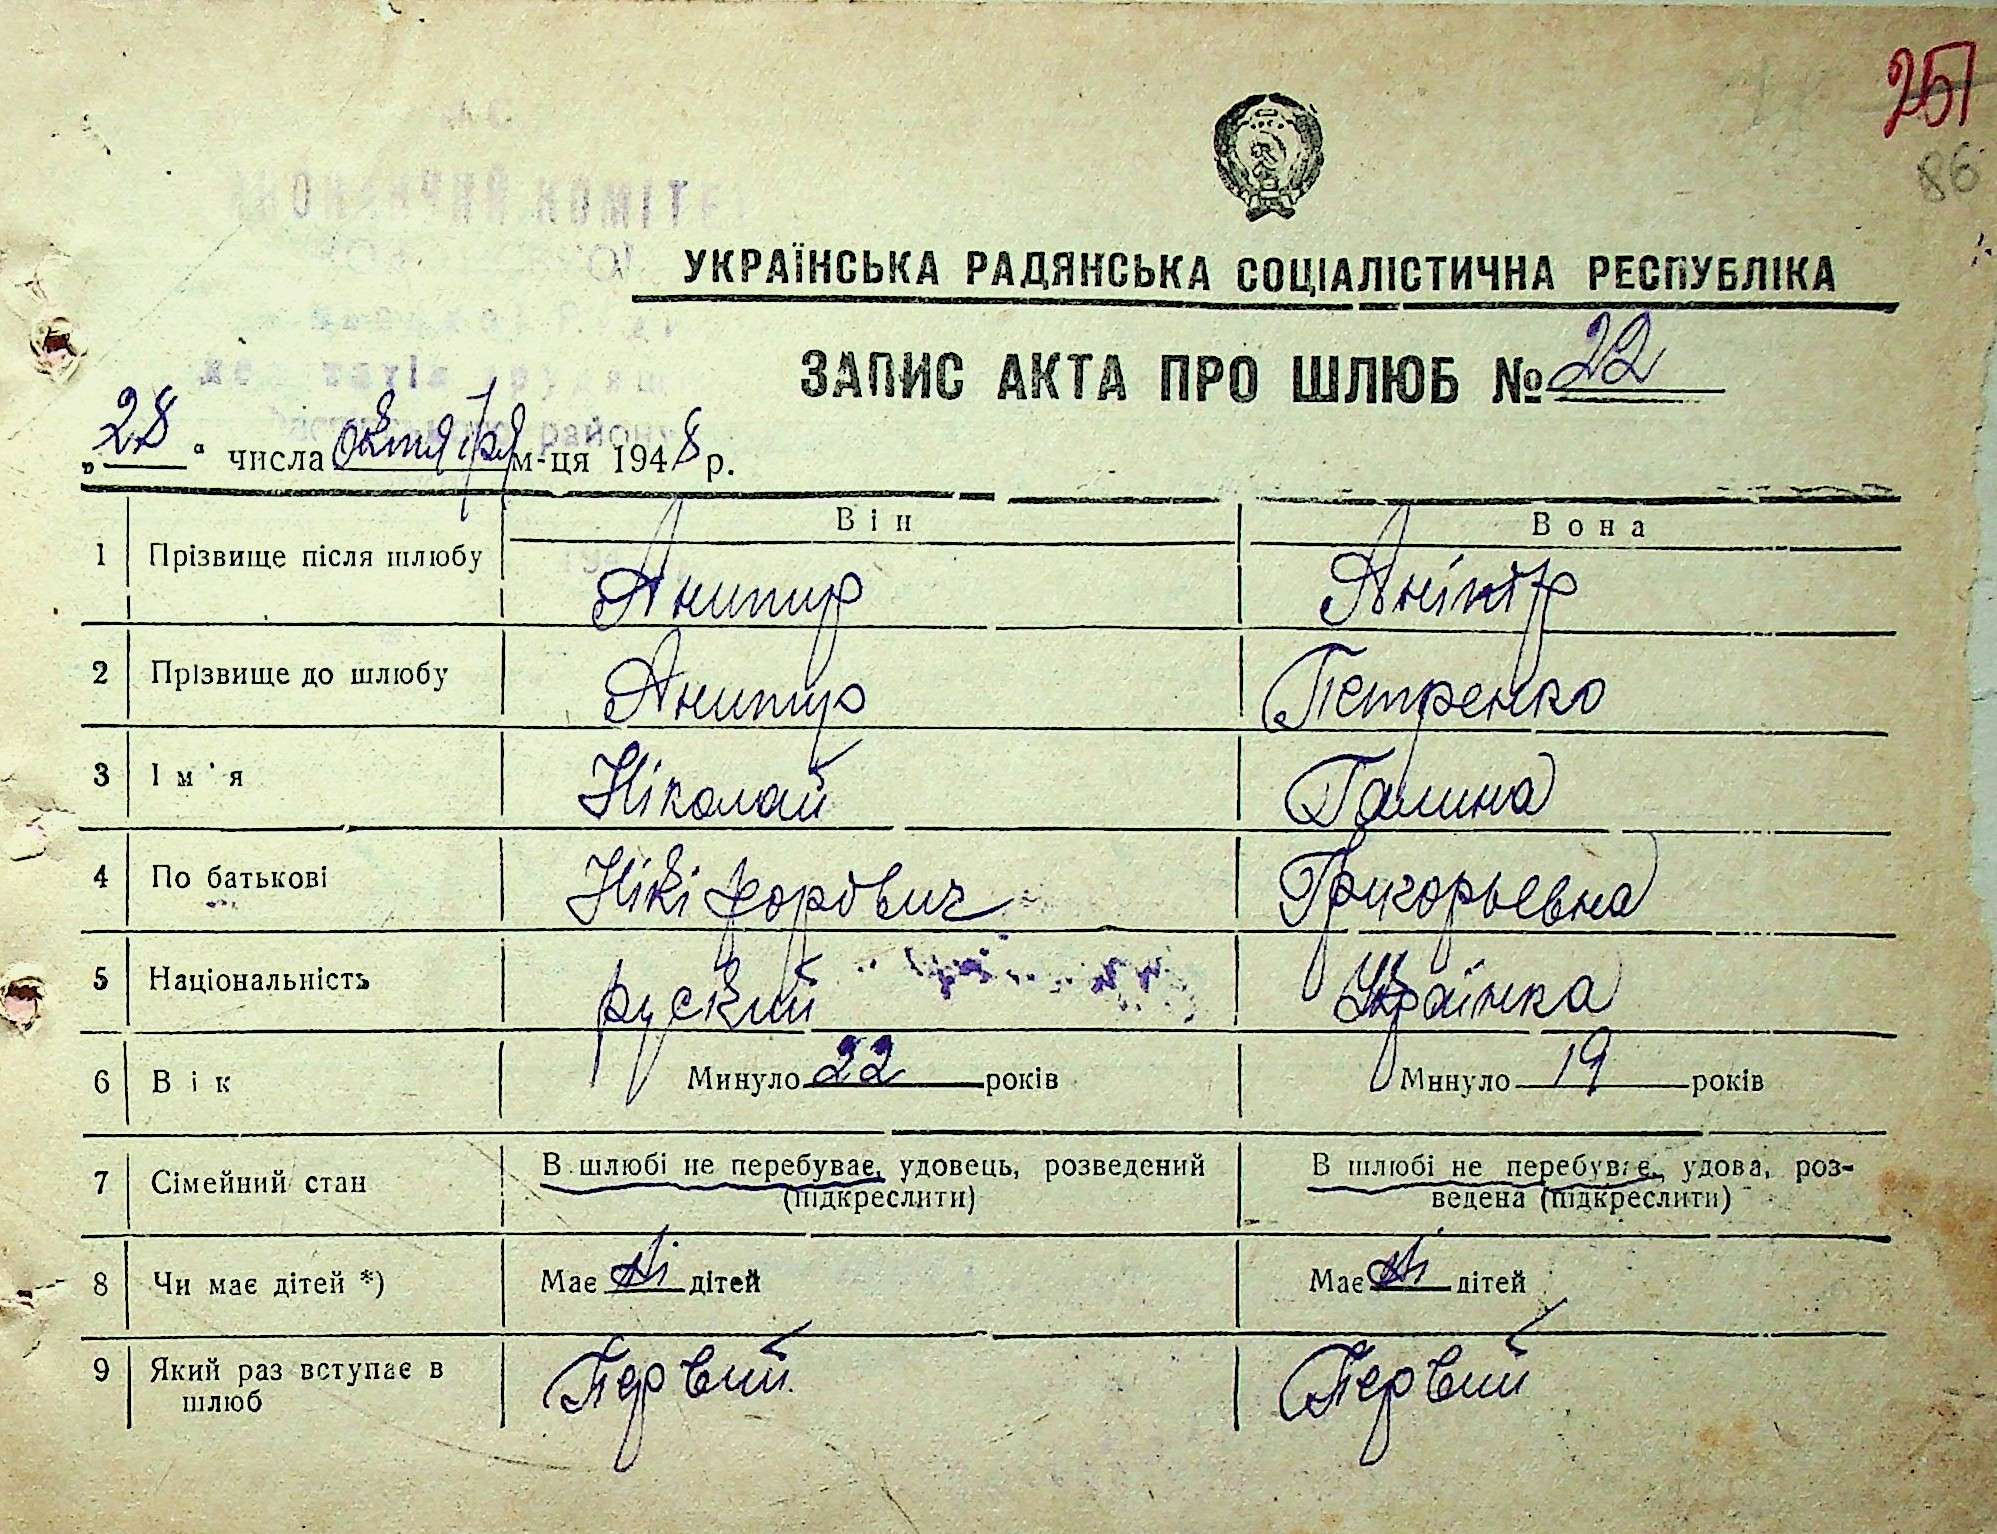 251
86
УКРАЇНСЬКА РАДЯНСЬКА СОЦІАЛІСТИЧНА РЕСПУБЛІКА
ЗАПИС АКТА ПРО ШЛЮБ № 22
„28“ числа октября м-ця 1948 р.
Він Вона
1 Прізвище після шлюбу Анипир Аніпір
2 Прізвище до шлюбу Анипир Петренко
3 Ім'я Ніколай Галина
4 По батькові Нікіфорович Григорьевна
5 Національність руский Українка
6 Вік Минуло 22 років Минуло 19 років
7 Сімейний стан В шлюбі не перебуває, удовець, розведений В шлюбі не перебуває, удова, роз-
(підкреслити) ведена (підкреслити)
8 Чи має дітей *) Має ні дітей Має ні дітей
9 Який раз вступає в Первий Первий
шлюб